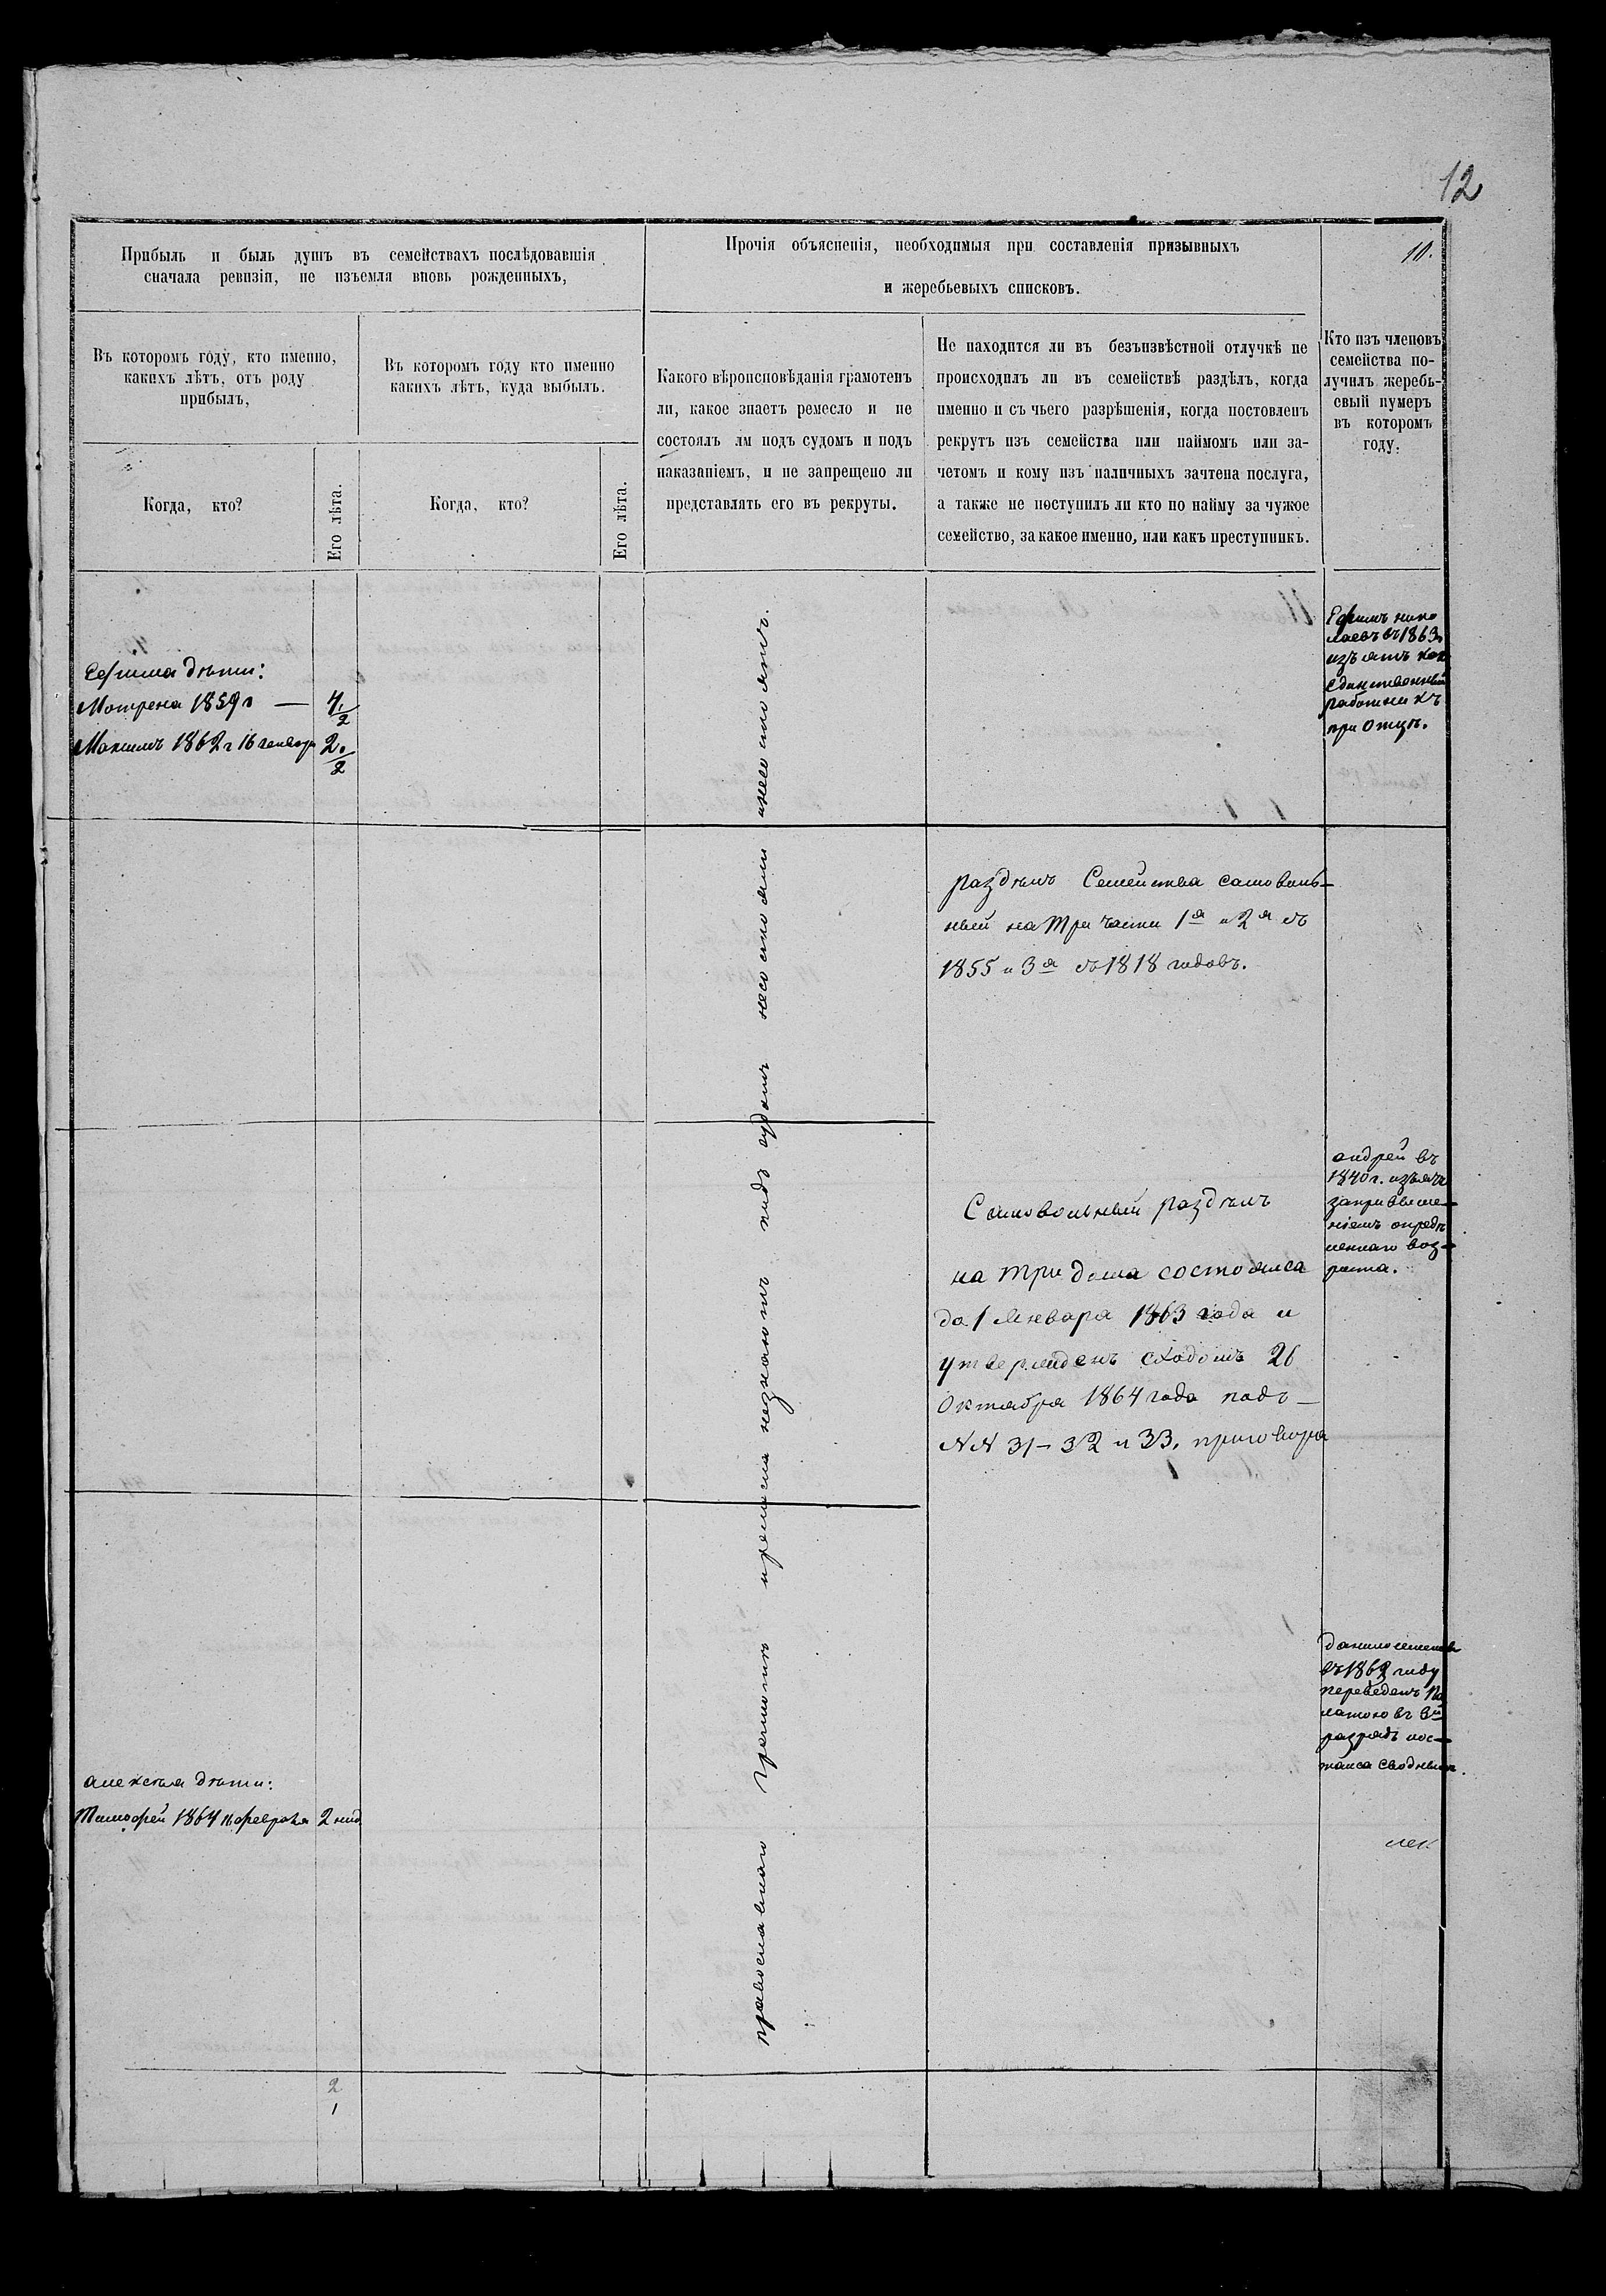 12
Прибыль и быль душъ въ семействахъ послѣдовавшія
сначала ревизіи, не изъемля вновь рожденныхъ,
Прочія объясненія, необходимыя при составленія призывныхъ
и жеребьевыхъ списковъ.
10.
Въ которомъ году, кто именно,
какихъ лѣтъ, отъ роду
прибылъ,
Въ которомъ году кто именно
какихъ лѣтъ, куда выбылъ.
Какого вѣроисповѣданія грамотенъ
ли, какое знаетъ ремесло и не
состоялъ лм подъ судомъ и подъ
наказаніемъ, и не запрещено ли
представлять его въ рекруты.
Не находится ли въ безъизвѣстной отлучкѣ не
происходилъ ли въ семействѣ раздѣлъ, когда
именно и съ чьего разрѣшенія, когда постовленъ
рекрутъ изъ семейства или наймомъ или за-
четомъ и кому изъ наличныхъ зачтена послуга,
а также не поступилъ ли кто по найму за чужое
семейство, за какое именно, или какъ преступникъ.
Кто изъ членовъ
семейства по-
лучилъ жеребь-
евый нумеръ
въ которомъ
году.
Когда, кто?
Его лѣта.
Когда, кто?
Его лѣта.
Ефима дѣти:
Мотрена 1859 г — 4/2
Максимъ 1862 г 16 генвар 2/2
Ефимъ нико
лаевъ въ 1863
изъятъ как
единственный
работникъ
при отцѣ.
православнаго грамотѣ ремесла незнаютъ подъ судомъ несостояли
раздѣлъ Семейства самоволь-
ный на три части 1я и 2я съ
1855 и 3я съ 1818 годовъ.
андрей въ
1840 г. изъятъ
за превыше-
ніемъ опредѣ
леннаго воз-
раста.
Самовольный раздѣлъ
на три дома состоялся
до 1 Января 1863 года и
утвержденъ сходомъ 26
Октября 1864 года подъ
NN 31– 32 и 33. приговора
въ 1862 году
переведенъ Па
латою въ 3й
разрядъ
алексѣя дѣти:
Тимофей 1864 февраля 2
2
1